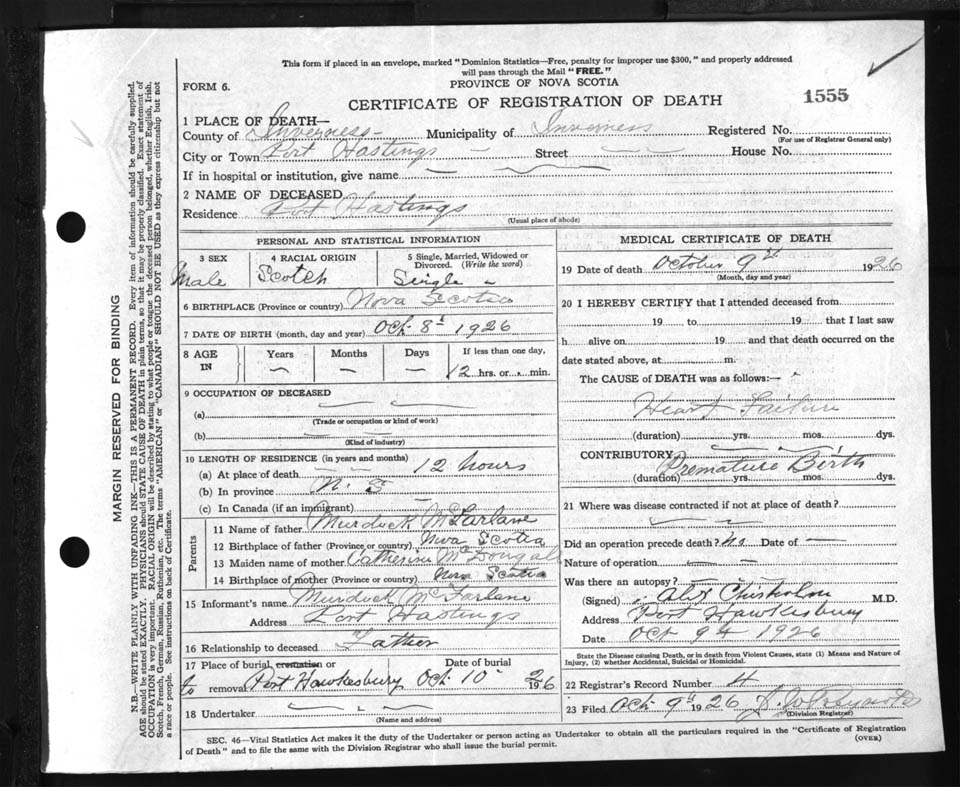 This form if placed in an envelope, marked "Dominion Statistics—Free, penalty for improper use $300," and properly addressed
will pass through the Mail "FREE."
FORM 6.
PROVINCE OF NOVA SCOTIA
CERTIFICATE OF REGISTRATION OF DEATH
1555
1 PLACE OF DEATH—
County of Inverness Municipality of Inverness Registered No.
(For use of Registrar General only)
City or Town Port Hastings — Street House No.
If in hospital or institution, give name
2 NAME OF DECEASED
Residence Port Hastings
(Usual place of abode)
PERSONAL AND STATISTICAL INFORMATION
3 SEX 4 RACIAL ORIGIN 5 Single, Married, Widowed or
Divorced. (Write the word)
Male Scotch Single
6 BIRTHPLACE (Province or country) Nova Scotia
7 DATE OF BIRTH (month, day and year) Oct 8th 1926
8 AGE IN Years Months Days If less than one day,
— — — 12 hrs. or min.
9 OCCUPATION OF DECEASED
(a)
(Trade or occupation or kind of work)
(b)
(Kind of industry)
10 LENGTH OF RESIDENCE (in years and months)
(a) At place of death 12 hours
(b) In province N. S
(c) In Canada (if an immigrant)
Parents
11 Name of father Murdock McFarlane
12 Birthplace of father (Province or country) Nova Scotia
13 Maiden name of mother Catherine McDougal
14 Birthplace of mother (Province or country) Nova Scotia
15 Informant's name Murdock McFarlane
Address Port Hastings
16 Relationship to deceased Father
17 Place of burial, cremation or Date of burial
removal Port Hawkesbury Oct 10 1926
18 Undertaker
(Name and address)
MEDICAL CERTIFICATE OF DEATH
19 Date of death October 9th 1926
(Month, day and year)
20 I HEREBY CERTIFY that I attended deceased from
19 to 19 that I last saw
h alive on 19 and that death occurred on the
date stated above, at m.
The CAUSE OF DEATH was as follows:—
Heart Failure
(duration) yrs. mos. dys.
CONTRIBUTORY
Premature Birth
(duration) yrs. mos. dys.
21 Where was disease contracted if not at place of death?
Did an operation precede death? No Date of —
Nature of operation —
Was there an autopsy?
(Signed) Alex Chisholm M.D.
Address Port Hawkesbury
Date Oct 9th 1926
State the Disease causing Death, or in death from Violent Causes, state (1) Means and Nature of
Injury, (2) whether Accidental, Suicidal or Homicidal.
22 Registrar's Record Number 4
23 Filed Oct 9th 1926
(Division Registrar)
SEC. 46—Vital Statistics Act makes it the duty of the Undertaker or person acting as Undertaker to obtain all the particulars required in the "Certificate of Registration
of Death" and to file the same with the Division Registrar who shall issue the burial permit.
(OVER)
MARGIN RESERVED FOR BINDING
N.B.—WRITE PLAINLY WITH UNFADING INK—THIS IS A PERMANENT RECORD. Every item of information should be carefully supplied.
AGE should be stated EXACTLY. PHYSICIANS should STATE CAUSE OF DEATH in plain terms, so that it may be properly classified. Exact statement of
OCCUPATION is very important. RACIAL ORIGIN will be described by stating to what people or tongue the deceased person belonged, whether English, Irish,
Scotch, French, German, Russian, Ruthenian, etc. The terms "AMERICAN" or "CANADIAN" SHOULD NOT BE USED as they express citizenship but not
a race or people. See instructions on back of Certificate.